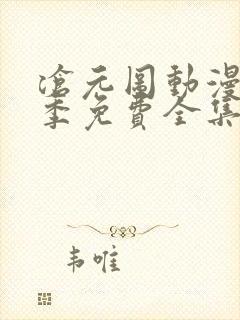 滄元圖動漫
季免費全集
韦唯